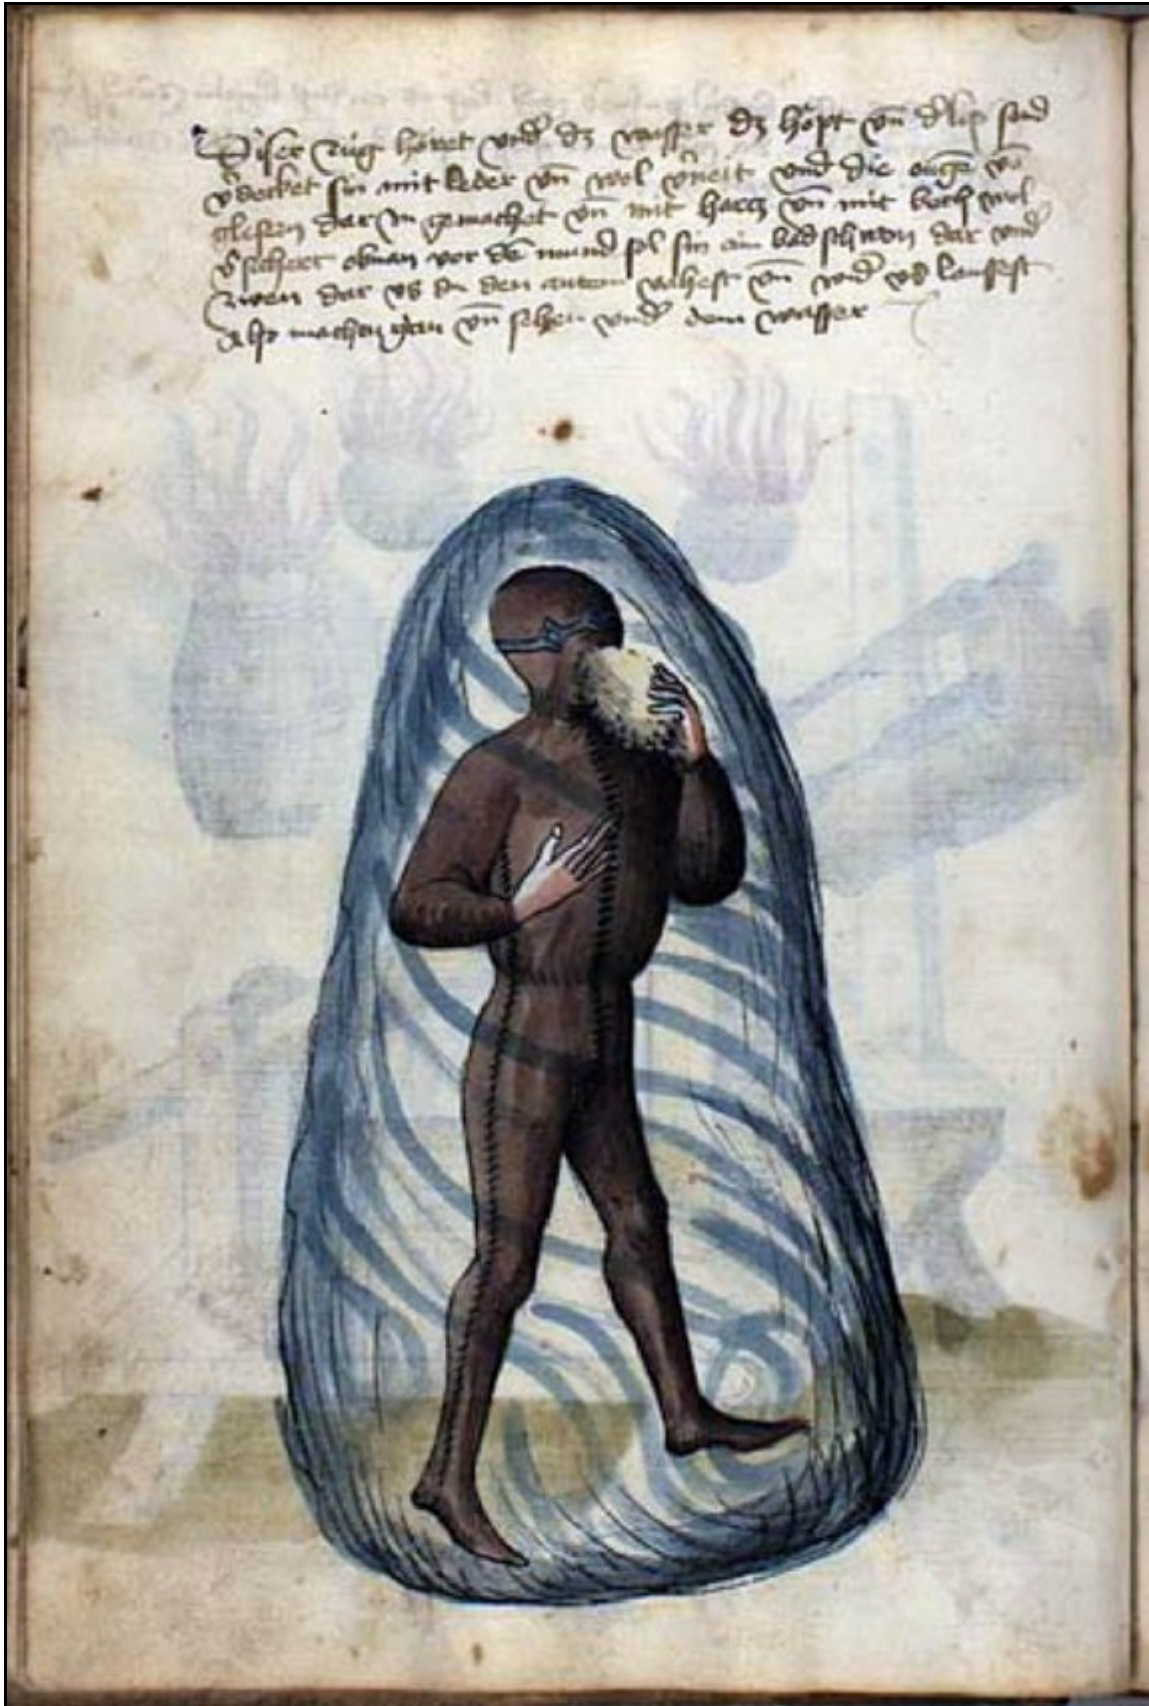 Diser zúg höret vnd̕ dz wasser dz höpt vn̄ d̕ lip sond
v̕decket sin mit leder vn̄ wol v̕neit vnd die ougē vō
glesern dar in gemachet vn̄ mit harcz vn̄ mit bech wol
v̕sichert obnan vor dē mund sol sin ain badschwom dar vnd̕
zwen dar vs du den autem vahest vn̄ wid̕ vs laussest
Also machtu gan vn̄ sehen vnd̕ dem wasser